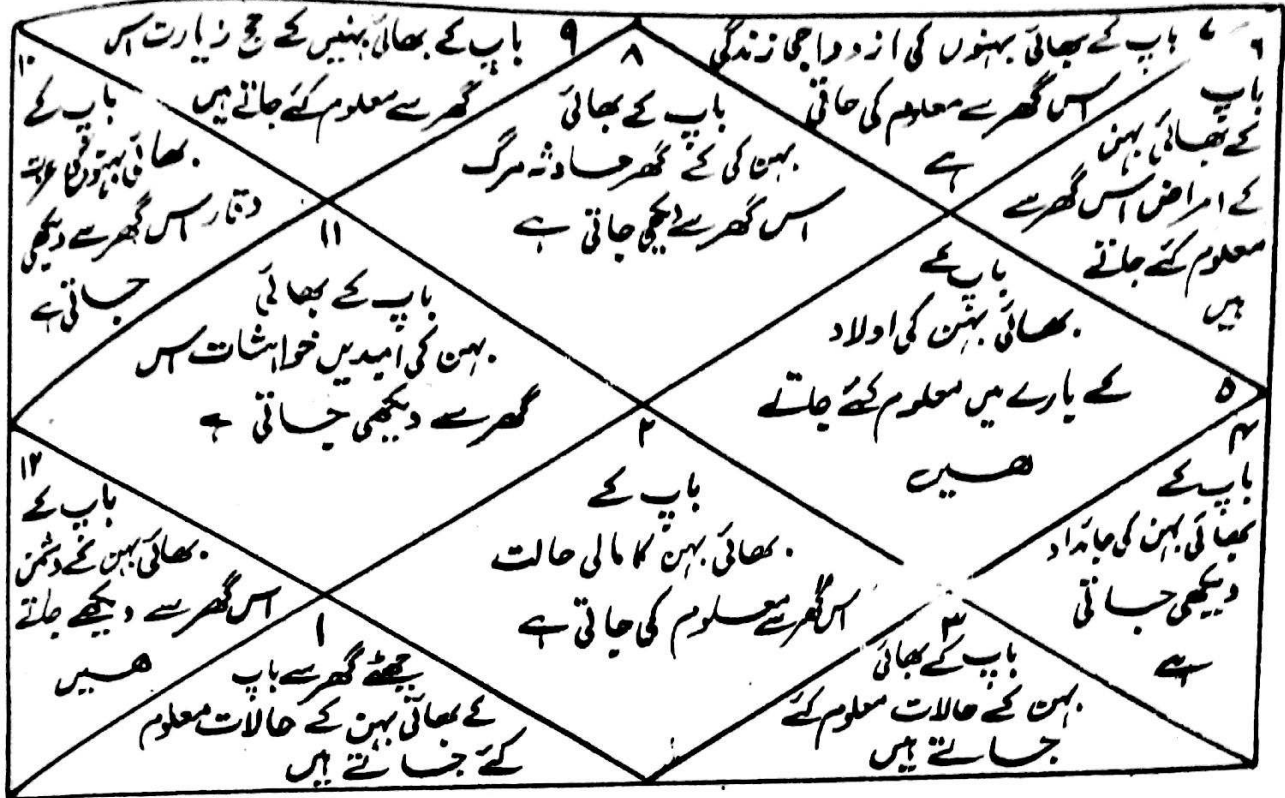 ۹
باپ کے بھائی بہنیں کے حج زیارت اس
گھر سے معلوم کئے جاتے ہیں
۸
باپ کے بھائی
بہن کی کے گھر حادثہ مرگ
اس گھر سے دیکھی جاتی ہے
۷
باپ کے بھائی بہنوں کی ازدواجی زندگی
اس گھر سے معلوم کی جاتی
ہے
۶
باپ
کے بھائی بہن
کے امراض اس گھر سے
معلوم کئے جاتے
ہیں
۱۰
باپ کے
بھائی بہنوں کی عزت
وقار اس گھر سے دیکھی
جاتی ہے
۱۱
باپ کے بھائی
بہن کی امیدیں خواہشات اس
گھر سے دیکھی جاتی ہے
باپ کے
بھائی بہن کی اولاد
کے بارے میں معلوم کئے جاتے
ھیں
۵
۲
باپ کے
بھائی بہن کا مالی حالت
اس گھر سے معلوم کی جاتی ہے
۴
باپ کے
بھائی بہن کی جائداد
دیکھی جاتی
ہے
۱۲
باپ کے
بھائی بہن کے دشمن
اس گھر سے دیکھے جاتے
ھیں
۱
چھٹے گھر سے باپ
کے بھائی بہن کے حالات معلوم
کئے جاتے ہیں
۳
باپ کے بھائی
بہن کے حالات معلوم کئے
جاتے ہیں